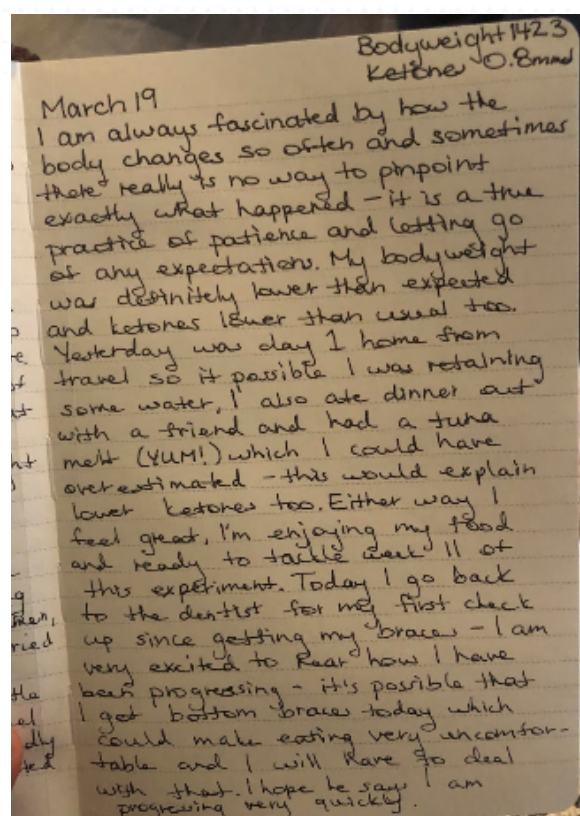 Bodyweight 142.3
Ketones 0.8mmol
March 19
I am always fascinated by how the
body changes so often and sometimes
there really is no way to pinpoint
exactly what happened - it is a true
practice of patience and letting go
of any expectations. My bodyweight
was definitely lower than expected
and ketones lower than usual too.
Yesterday was day 1 home from
travel so it possible I was retaining
some water, I also ate dinner out
with a friend and had a tuna
melt (YUM!) which I could have
overestimated - this would explain
lower ketones too. Either way I
feel great, I'm enjoying my food
and ready to tackle week 11 of
this experiment. Today I go back
to the dentist for my first check
up since getting my braces - I am
very excited to hear how I have
been progressing - it's possible that
I get bottom braces today which
could make eating very uncomfor-
table and I will have to deal
with that. I hope he says I am
progressing very quickly.